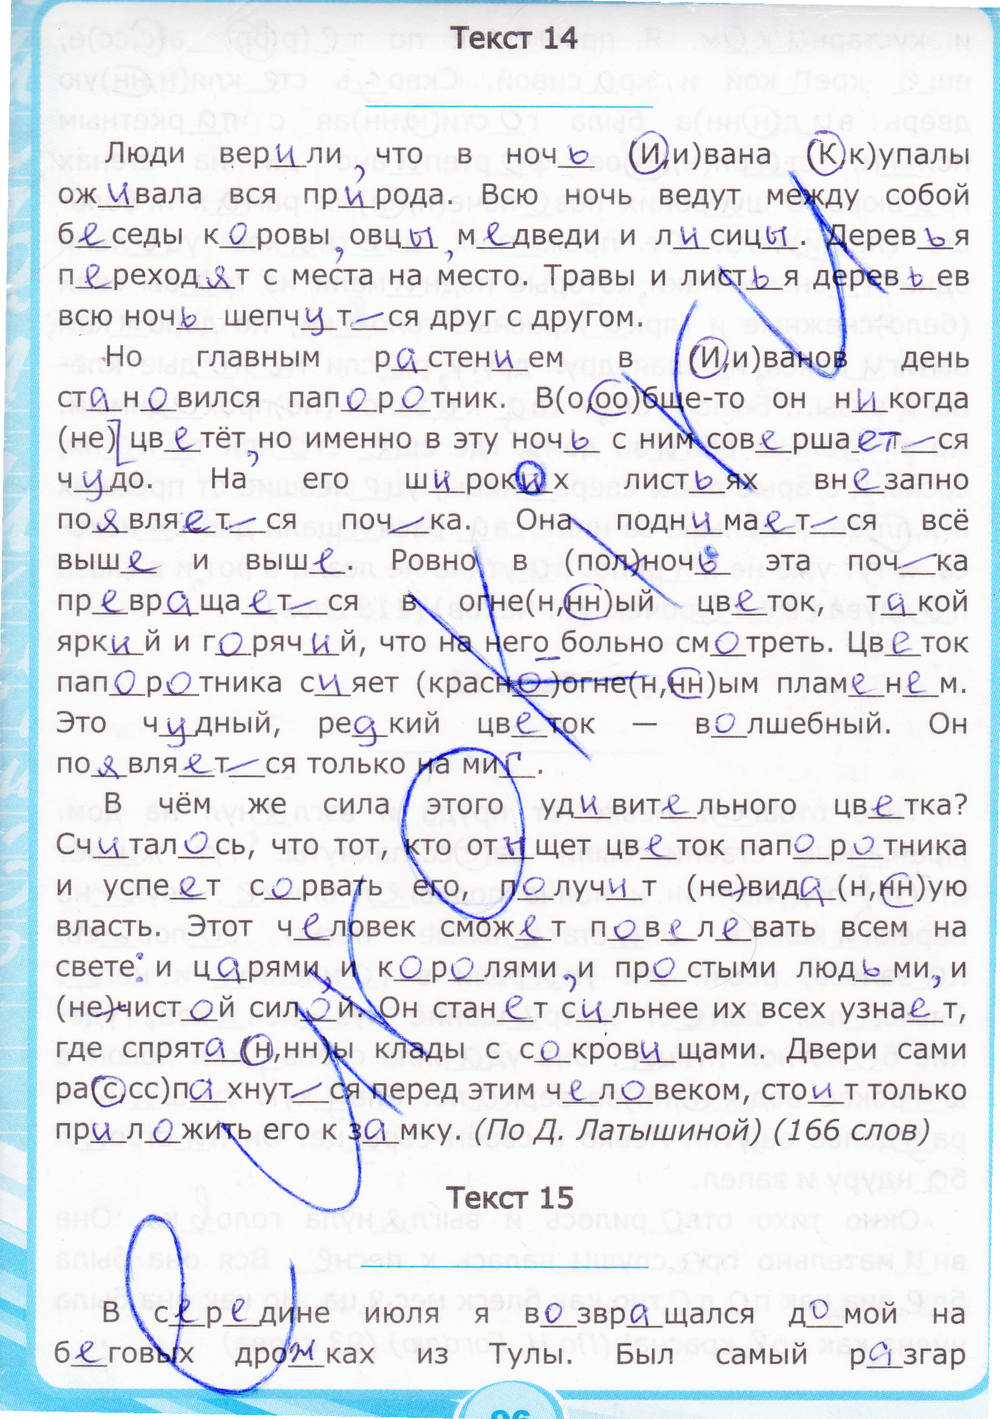 Текст 14
Люди верили, что в ночь (И,и)вана (К,к)упалы
оживала вся природа. Всю ночь ведут между собой
беседы коровы, овцы, медведи и лисицы. Деревья
переходят с места на место. Травы и листья деревьев
всю ночь шепчут—ся друг с другом.
Но главным растением в (И,и)ванов день
становился папоротник. В(о,оо)бще-то он никогда
(не) цветёт, но именно в эту ночь с ним совершает—ся
чудо. На его широких листьях внезапно
появляет—ся поч—ка. Она поднимает—ся всё
выше и выше. Ровно в (пол)ночь эта поч—ка
превращает—ся в огне(н,нн)ый цветок, такой
яркий и горячий, что на него больно смотреть. Цветок
папоротника сияет (красно)огне(н,нн)ым пламенем.
Это чудный, редкий цветок — волшебный. Он
появляет—ся только на миг.
В чём же сила этого удивительного цветка?
Считалось, что тот, кто отыщет цветок папоротника
и успеет сорвать его, получит (не)вида(н,нн)ую
власть. Этот человек сможет повелевать всем на
свете: и царями, и королями, и простыми людьми, и
(не)чистой силой. Он станет сильнее их всех узнает,
где спрята(н,нн)ы клады с сокровищами. Двери сами
ра(с,сс)пахнут—ся перед этим человеком, стоит только
приложить его к замку. (По Д. Латышиной) (166 слов)
Текст 15
В середине июля я возвращался домой на
беговых дрожках из Тулы. Был самый разгар
96